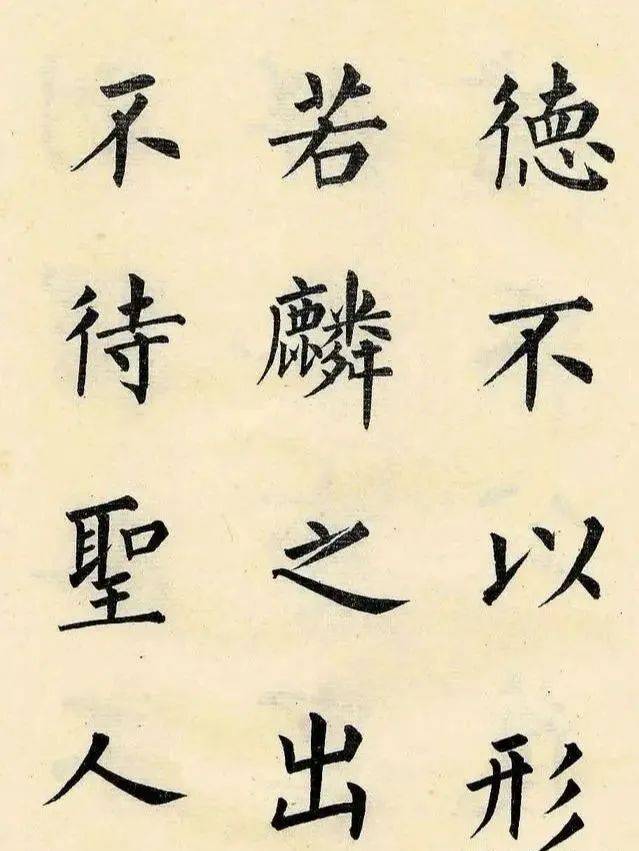 德不以形
若麟之出
不待聖人